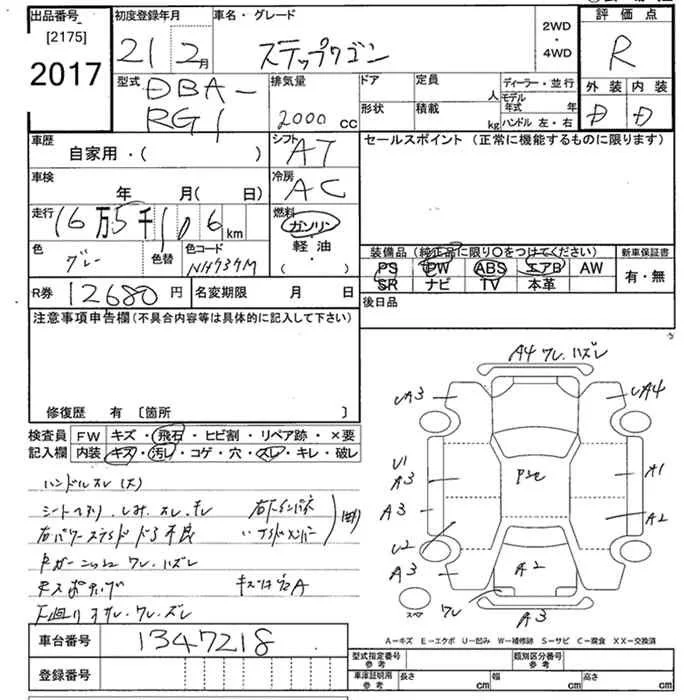 出品番号
[2175]
2017
初度登録年月
21 2月
車名・グレード
ステップワゴン
2WD
・
4WD
評価点
R
外装 内装
D D
型式
DBA-
RG1
排気量
2000 cc
ドア
形状
定員 人
積載 kg
ディーラー・並行
モデル
年式 年
ハンドル 左・右
車歴
自家用・( )
シフト
AT
セールスポイント (正常に機能するものに限ります)
車検
年 月( 日)
冷房
AC
走行
16万5千106 km
燃料
ガソリン・
軽油
・
( )
色
グレー
色替
色コード
NH737M
装備品 (純正品に限り○をつけてください)
PS PW ABS エアB AW
SR ナビ TV 本革
新車保証書
有・無
R券 12680円
名変期限 月 日
後日品
注意事項申告欄(不具合内容等は具体的に記入して下さい)
修復歴 有 [箇所 ]
検査員
記入欄
FW キズ・飛石・ヒビ割・リペア跡・×要
内装 キズ・汚レ・コゲ・穴・スレ・キレ・破レ
ハンドルスレ(大)
A4 ワレ.ハズレ
UA3
UA4
U1
A3
A3
U2
A3
A1
A2
A2
ワレ
A3
スペア
A−キズ E−エクボ U−凹み W−補修跡 S−サビ C−腐食 XX−交換済
車台番号 1347218
登録番号
型式指定番号
参考
類別区分番号
参考
車庫証明用
参考
長さ cm
幅 cm
高さ cm